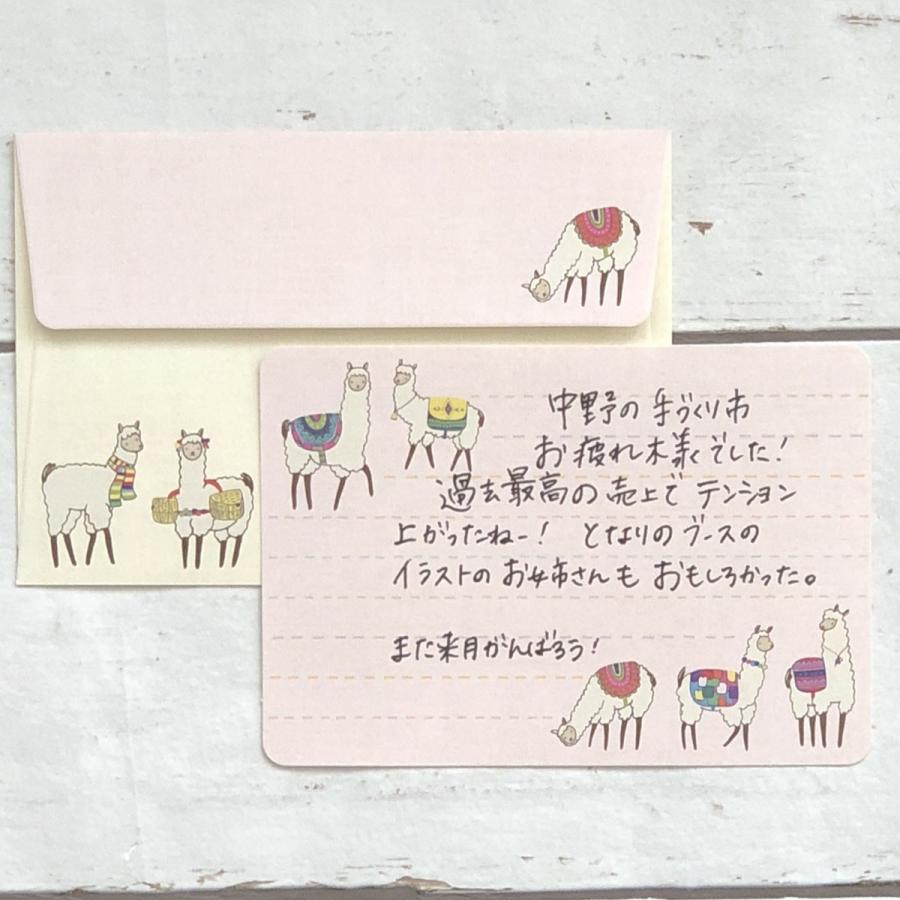 中野の手づくり市
お疲れ木美でした!
過去最高の売上でテンション
上がったねー! となりのブースの
イラストのお姉さんもおもしろかった。
また来月がんばろう!